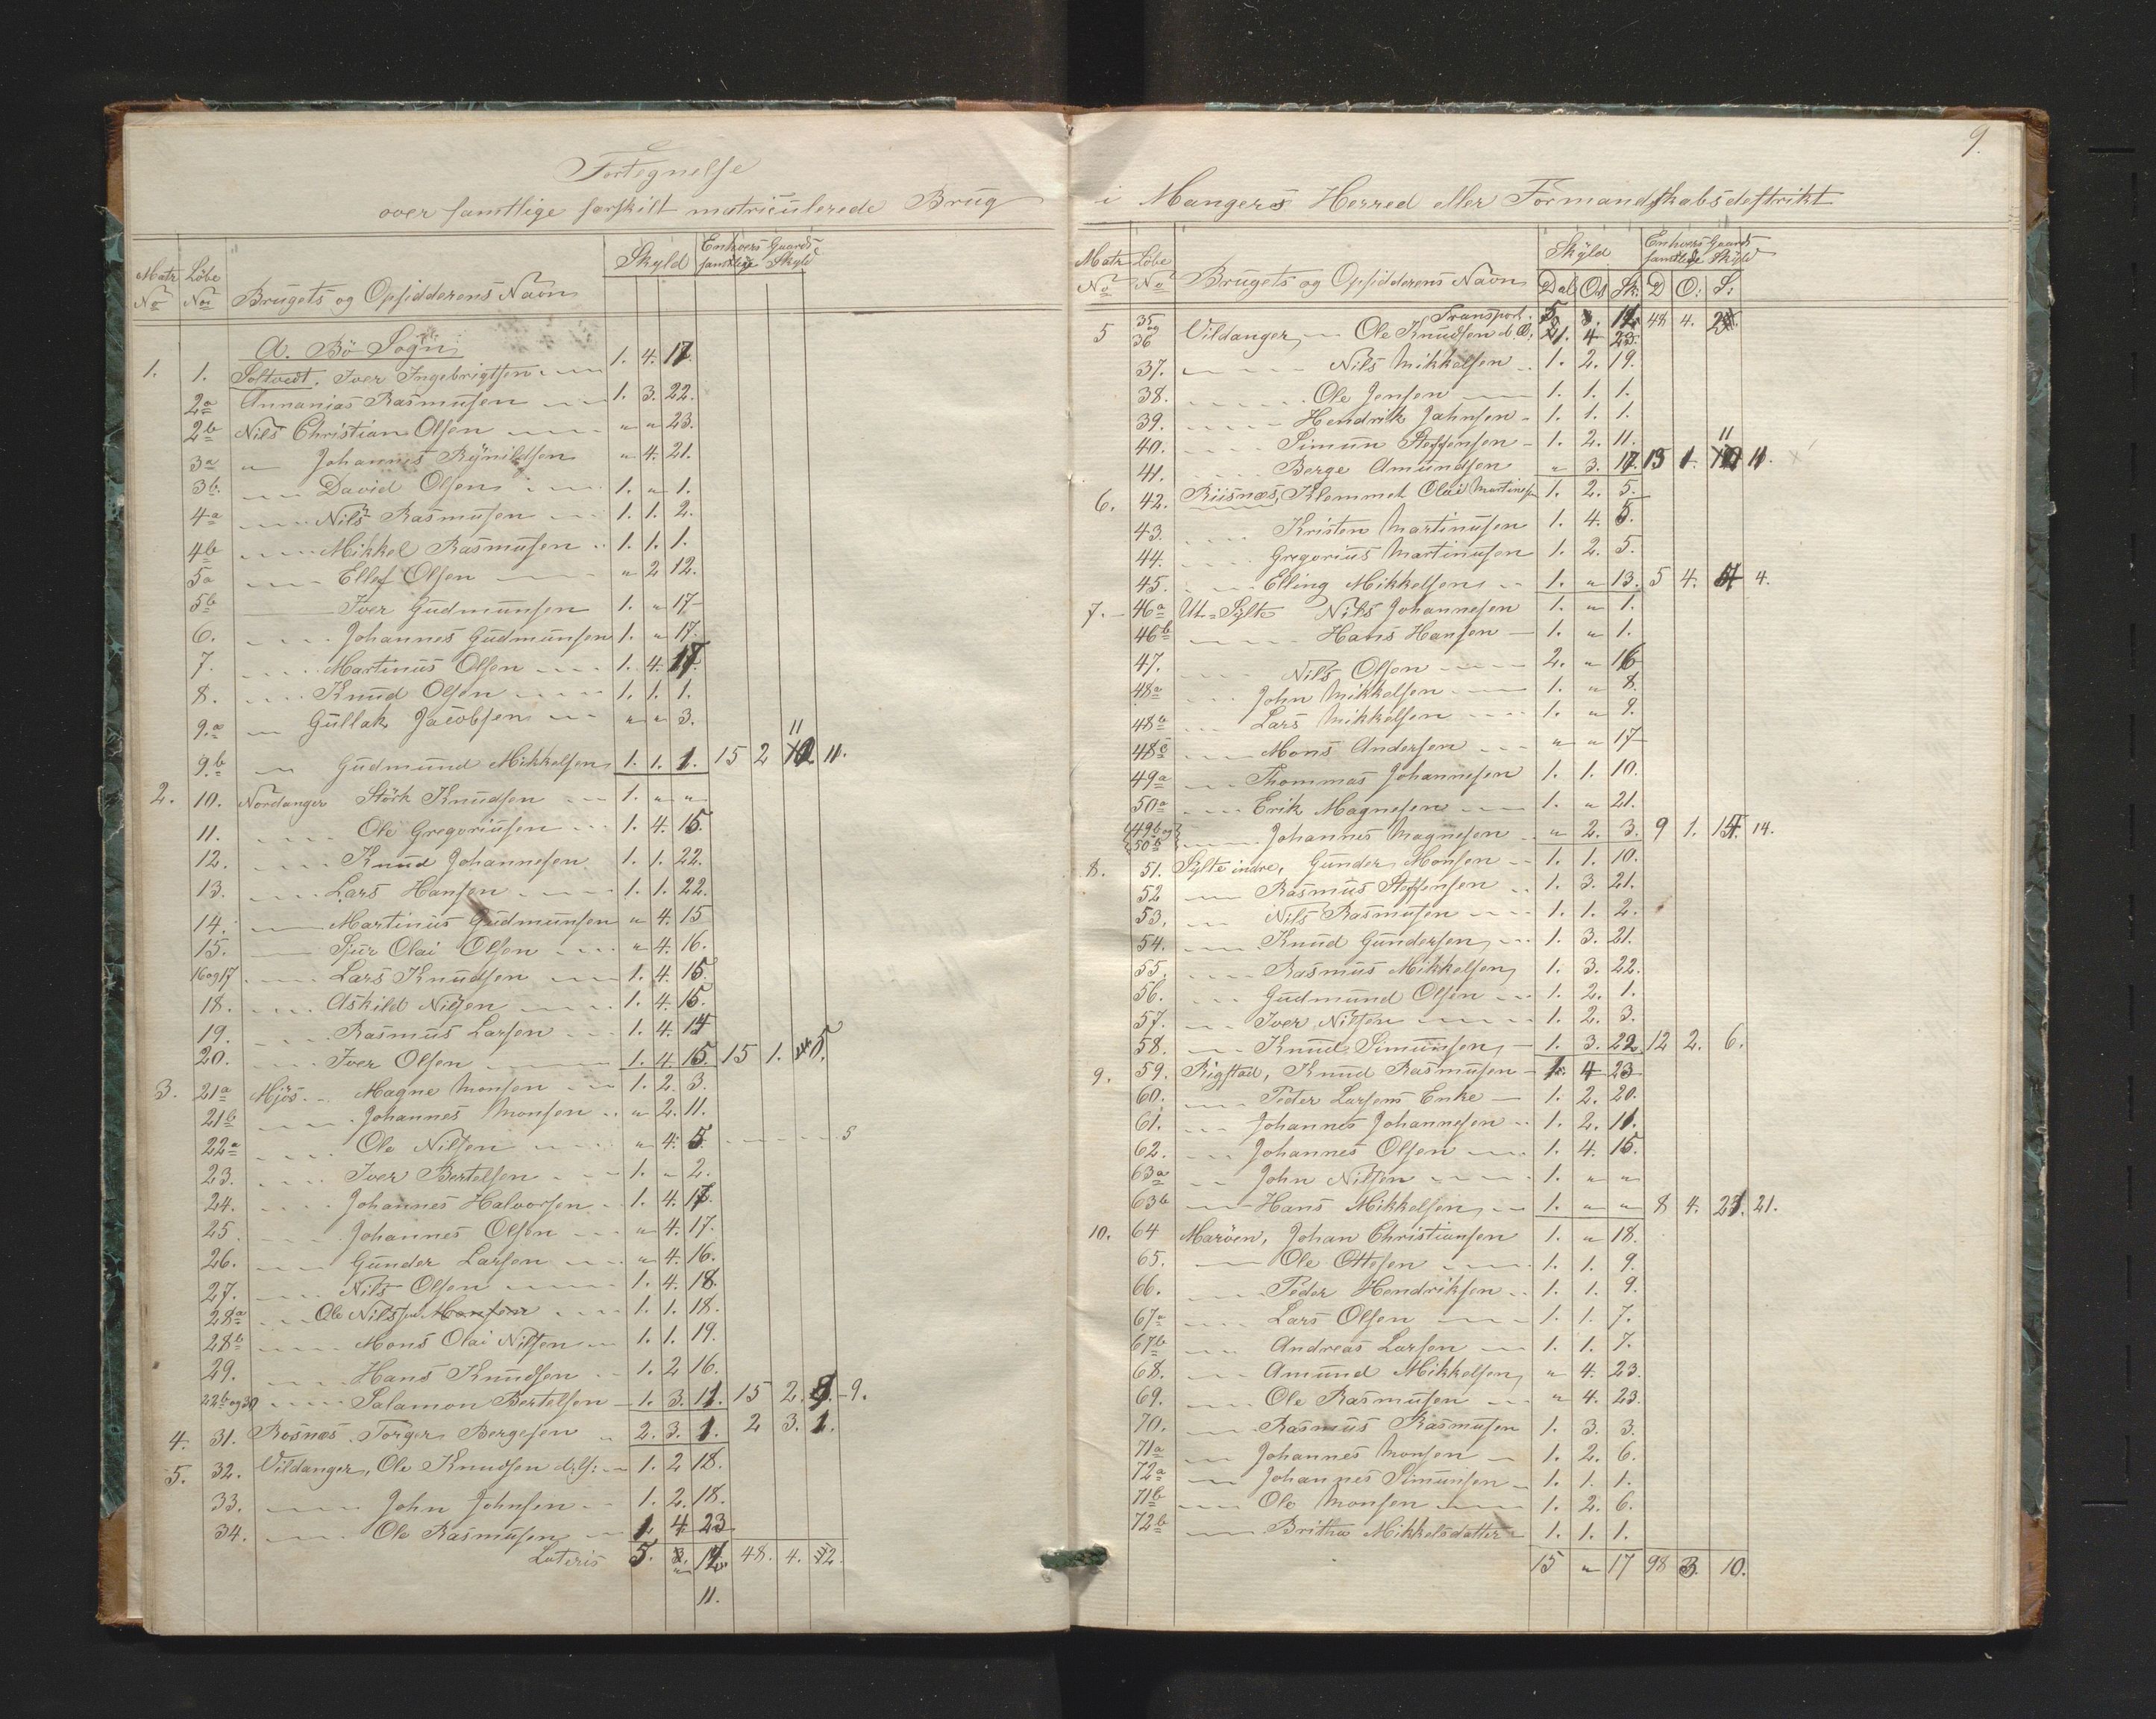 Fortegnelse
over samtlige særskilt matriculerede Brug
Matr No
Løbe No
Brugets og Opsidderens Navn
Skyld
Enhvers Gaards samtlige Skyld
A. Bö Sogn
1. 1. Soltvedt. Iver Ingebrigtsen 1. 4. 17.
2a Annanias Rasmusen 1. 3. 22.
2b Nils Christian Olsen " " 23.
3a " Johannes Rÿnildsen " 4. 21.
3b. David Olsen 1. " 1.
4a Nils Rasmusen 1. 1. 2.
4b Mikkel Rasmusen 1. 1. 1.
5a Ellef Olsen " 2 12.
5b Iver Gudmunsen 1. " 17
6. Johannes Gudmunsen 1. " 17.
7. Martinus Olsen 1. 4. 17.
8. Knud Olsen 1. 1. 1.
9.a Gullak Jacobsen " " 3.
9.b Gudmund Mikkelsen 1. 1. 1. 15 2 11.
2. 10. Nordanger Störk Knudsen 1. " "
11. Ole Gregoriusen 1. 4. 15.
12. Knud Johannesen 1. 1. 22.
13. Lars Hansen 1. 1. 22.
14. Martinus Gudmunsen " 4. 15
15. Sjur Olai Olsen " 4. 16.
16 og 17. Lars Knudsen 1. 4. 15.
18. Askild Nilsen 1. 4. 15.
19. Rasmus Larsen 1. 4. 14
20. Iver Olsen 1. 4. 15. 15 1. 5.
3. 21a Mjös Magne Monsen 1. 2. 3.
21b Johannes Monsen " 2. 11.
22a Ole Nilsen " 4. 5. 5
23. Iver Bertelsen 1. " 2.
24. Johannes Halvorsen 1. 4. 17.
25. Johannes Olsen " 4. 17.
26. Gunder Larsen " 4. 16.
27. Nils Olsen 1. 4. 18.
28a Ole Nilssen Monsen 1. 1. 18.
28b Mons Olai Nilsen 1. 1. 19.
29. Hans Knudsen 1. 2 16.
22b og 30 Salamon Bertelsen 1. 3. 11. 15 2. 9. 9.
4. 31. Rosnæs. Torger Bergesen 2. 3. 1. 2 3. 1.
5. 32. Vildanger, Ole Knudsen d. 1. 2 18.
33. John Johnsen 1. 2. 18.
34. Ole Rasmusen 1. 4. 23
Lateris 5. 48. 4.
11.
9.
i Mangers Herred eller Formandskabsdestrikt
Matr No
Løbe No
Brugets og Opsidderens Navn
Skyld
Enhvers Gaards samtlige Skyld
Dal Ort Sk. D O: S:
Transport. 5. 48 4.
5 35 og 36 Vildanger, Ole Knudsen d. 1. 4 23.
37. Nils Mikkelsen 1. 2. 19.
38. Ole Jensen 1. 1. 1.
39. Hendrik Jahnsen 1. 1. 1.
40. Simun Steffensen 1. 2. 11.
41. Berge Amundsen " 3. 17. 13 1. 11.
6. 42. Riisnæs, Klemmet Olai Martinesen 1. 2. 5.
43. Kristen Martinusen 1. 4. 5.
44. Gregorius Martinusen 1. 2. 5.
45. Elling Mikkelsen 1. " 13. 5 4. 4.
7. 46a Ut-Sylte Nils Johannesen 1. " 1.
46b Hans Hansen 1. " 1.
47. Nils Olsen 2. " 16
48a John Mikkelsen 1. " 8.
48b Lars Mikkelsen 1. " 9.
48c Mons Andersen " " 17
49a Thommas Johannesen 1. 1. 10.
50a Erik Magnesen 1. " 21.
49b og 50b Johannes Magnesen " 2. 3. 9 1. 14. 14.
8. 51. Sylte indre, Gunder Monsen 1. 1. 10.
52 Rasmus Steffensen 1. 3. 21.
53. Nils Rasmusen 1. 1. 2.
54. Knud Gundersen 1. 3. 21.
55. Rasmus Mikkelsen 1. 3. 22.
56. Gudmund Olsen 1. 2. 1.
57. Iver Nilsen 1. 2. 3.
58. Knud Simunsen 1. 3. 22. 12 2. 6.
9. 59. Rigstad, Knud Rasmusen 1. 4 23
60. Peder Larsens Enke 1. 2. 20.
61. Johannes Johannesen 1. 2. 11.
62. Johannes Olsen 1. 4. 15.
63a John Nilsen 1. " "
63b Hans Mikkelsen 1. " " 8 4. 21. 21.
10. 64 Maröen, Johan Christiansen 1. " 18.
65. Ole Ottesen 1. 1. 9.
66. Peder Hendriksen 1. 1. 9.
67a Lars Olsen 1. 1. 7.
67b Andreas Larsen 1. 1. 7.
68. Amund Mikkelsen " 4. 23.
69. Ole Rasmusen " 4. 23.
70. Rasmus Rasmusen 1. 3. 3.
71a Johannes Monsen 1. 2. 6.
72a Johannes Simunsen 1. 1. 1.
71b Ole Monsen 1. 2. 6.
72b Britha Mikkelsdatter 1. 1. 1.
15 " 17 98 3. 10.